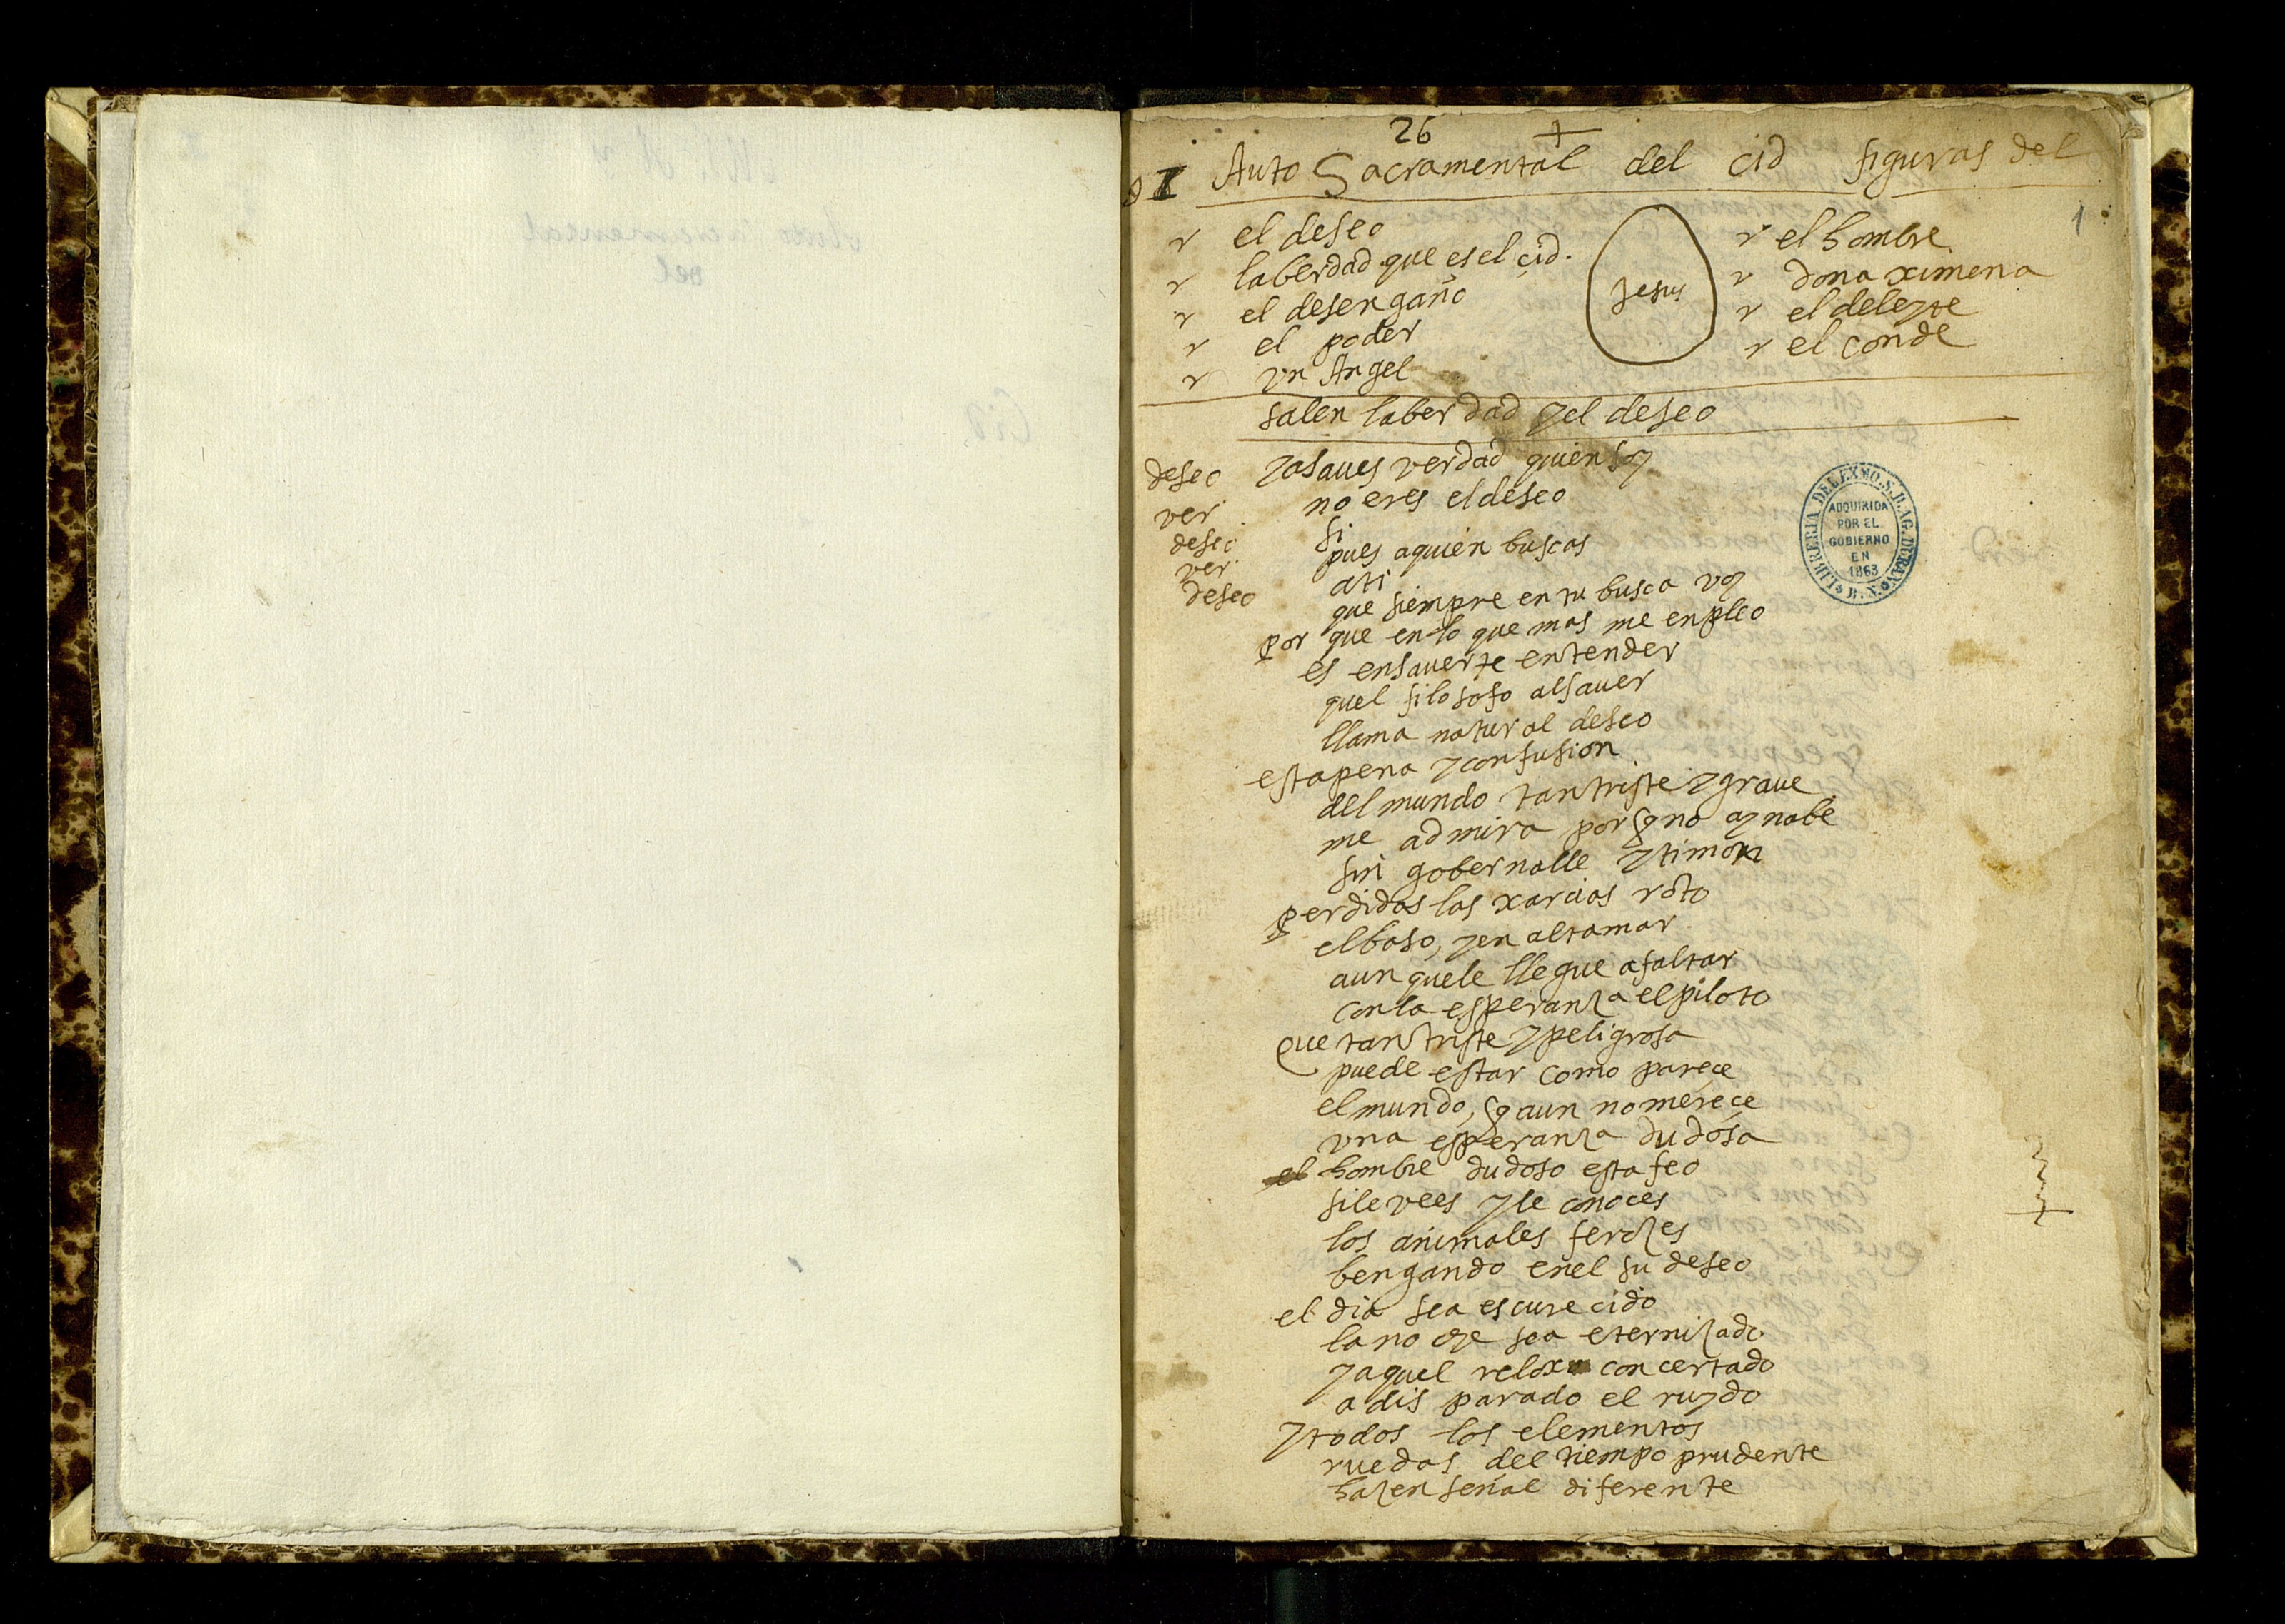 26
+
I Auto Sacramental del cid figuras del
1
el deseo
laberdad que es el çid.
el desengaño
el poder
vn Angel
Jesus
el hombre
dona ximena
el deleyte
el conde
salen laberdad yel deseo
deseo yasaues verdad quien soy
ver no eres eldeseo
deseo si
ver pues aquien buscas
deseo ati
que siempre en tu busca voy
por que en lo que mas me enpleo
es ensauerte entender
quel filosofo alsauer
llama natural deseo
estapena yconfusion
del mundo tantriste ygraue
me admira porq no ay nabe
sin gobernalle ytimon
perdidas las xarcias roto
elbaso, yen altamar
aun quele llegue afaltar
conla esperanza elpiloto
que tantriste ypeligrosa
puede estar como pareçe
elmundo, q aun nomereçe
vna esperanza dudosa
el hombre dudoso esta feo
sile vees yle conoces
los animales ferozes
bengando enel su deseo
el dia sea escurecido
la noche sea eternizado
yaquel relox concertado
a dis parado el ruydo
ytodos los elementos
ruedas del tiempo prudente
hazen señal diferente
LIBRERIA DEL EXMO. S. D. AG. DURAN
B. N.
ADQUIRIDA
POR EL
GOBIERNO
EN
1863